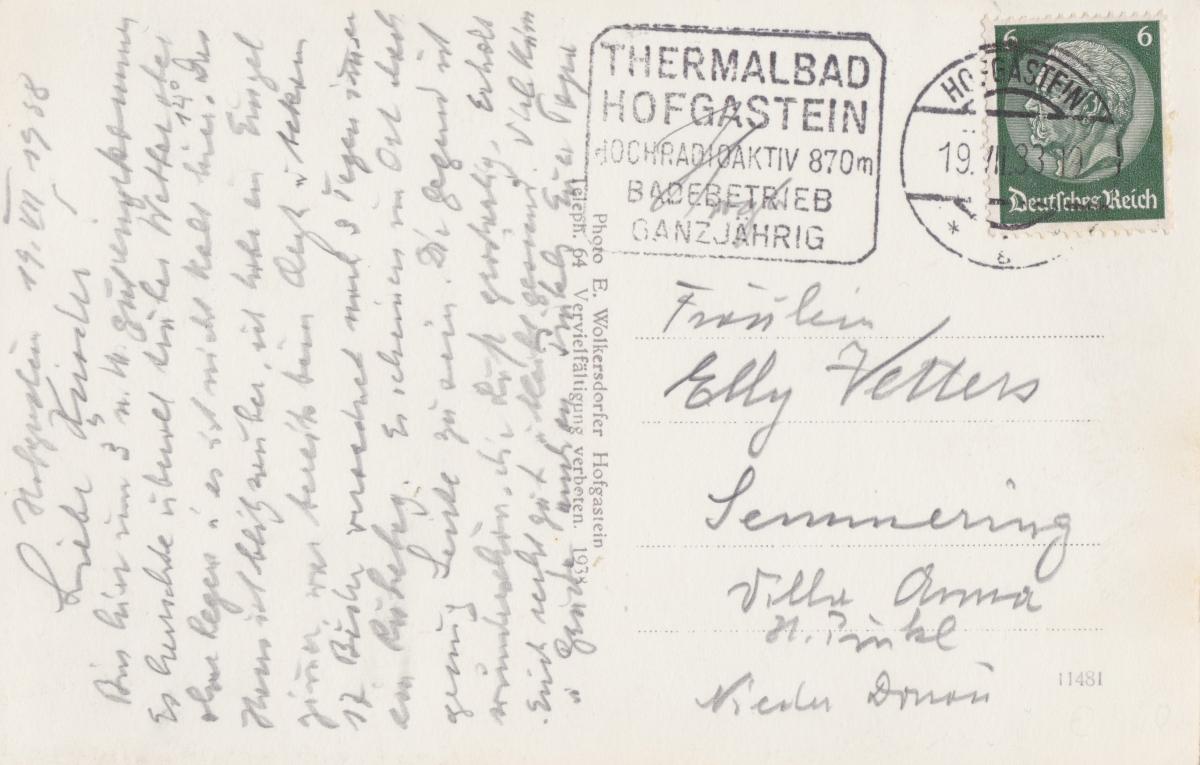 Hofgastein 19. VII 1938
Liebe Kinder!
Bin hier um 3 n. M. gut angekommen
Es herrschte überall trübes Wetter
ohne Regen es ist nicht kalt hier. 14° Das
Haus ist blitzsauber, ich habe ein Einzel
zimmer, war bereits beim Arzt u.
12 Bäder verordnet und 3 Tagen immer
ein Ruhetag. Es scheinen im Ort
genug Leute zu sein. Die Gegend ist
wunderschön, die Luft großartig. Erholt
Euch recht gut Viele
Grüße und Euer Papa
Photo E. Wolkersdorfer Hofgastein
Teleph. 64 Vervielfältigung verboten. 1938
THERMALBAD
HOFGASTEIN
HOCHRADIOAKTIV 870m
BADEBETRIEB
GANZJÄHRIG
HOFGASTEIN
19. VII. 38
* 8
6 6
Deutsches Reich
Fräulein
Elly Vetters
Semmering
Villa Anna
H. Pinkl
Nieder Donau
11481